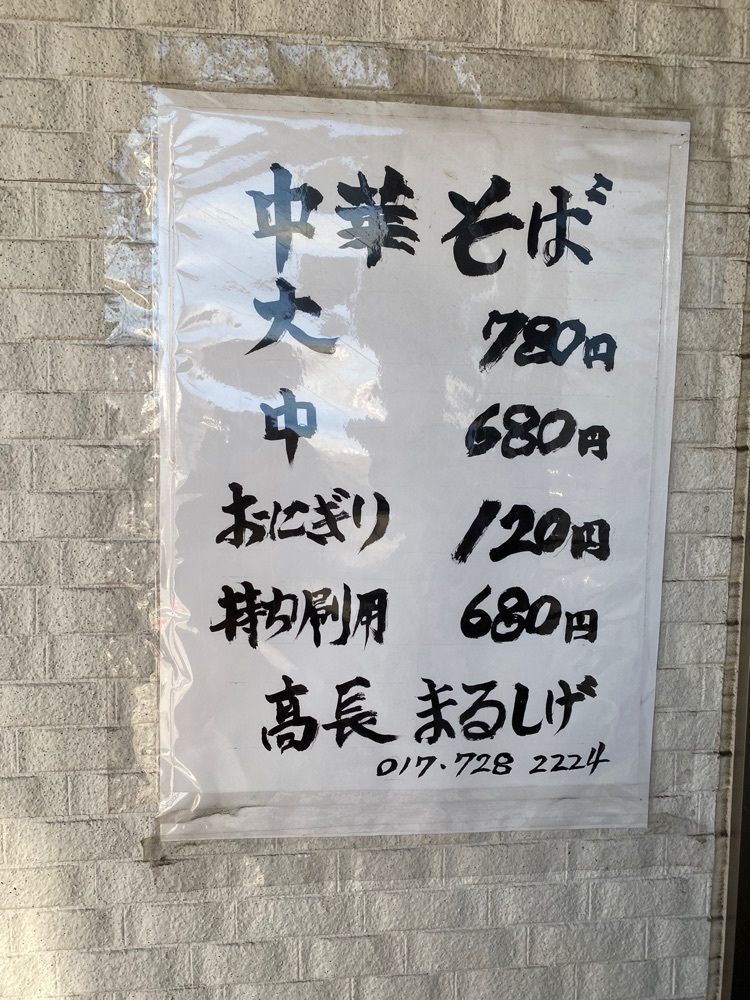 中華そば
大 780円
中 680円
おにぎり 120円
持ち帰り用 680円
高長 まるしげ
017.728 2224